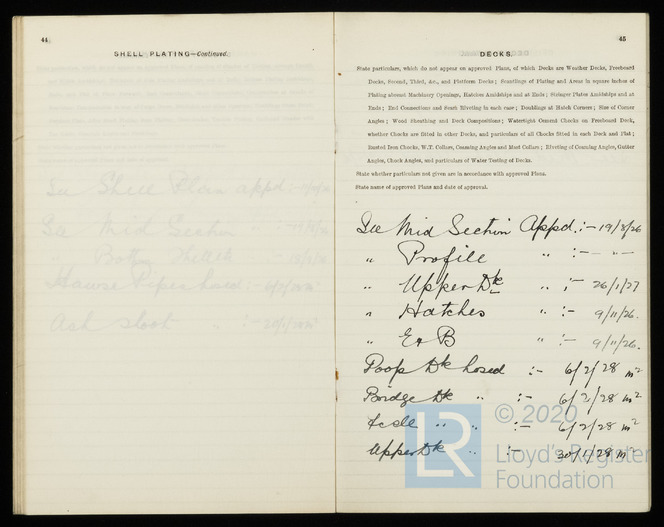 44
SHELL PLATING—Continued.
See Shell Plan appd:-
See Mid Section " :-
" Bottom
Hawse Pipes hosed :-
Ash shoot " :-
45
DECKS.
State particulars, which do not appear on approved Plans, of which Decks are Weather Decks, Freeboard
Decks, Second, Third, &c., and Platform Decks; Scantlings of Plating and Areas in square inches of
Plating abreast Machinery Openings, Hatches Amidships and at Ends; Stringer Plates Amidships and at
Ends; End Connections and Scarf Riveting in each case; Doublings at Hatch Corners; Size of Corner
Angles; Wood Sheathing and Deck Compositions; Watertight Cement Chocks on Freeboard Deck,
whether Chocks are fitted in other Decks, and particulars of all Chocks fitted in each Deck and Flat;
Rusted Iron Chocks, W.T. Collars, Coaming Angles and Mast Collars; Riveting of Coaming Angles, Gutter
Angles, Chock Angles, and particulars of Water Testing of Decks.
State whether particulars not given are in accordance with approved Plans.
State name of approved Plans and date of approval.
See Mid Section Appd. :- 19/8/26
" Profile " :- - " -
" Upper Dk " :- 26/1/27
" Hatches " :- 9/11/26.
" E & B " :- 9/11/26.
Poop Dk hosed :- 6/2/28 m²
Bridge Dk " :- 6/2/28 m²
Fcsle " " :- 6/2/28 m²
Upper Dk " :- 30/1/28 m²
LR © 2020
Lloyd's Register
Foundation